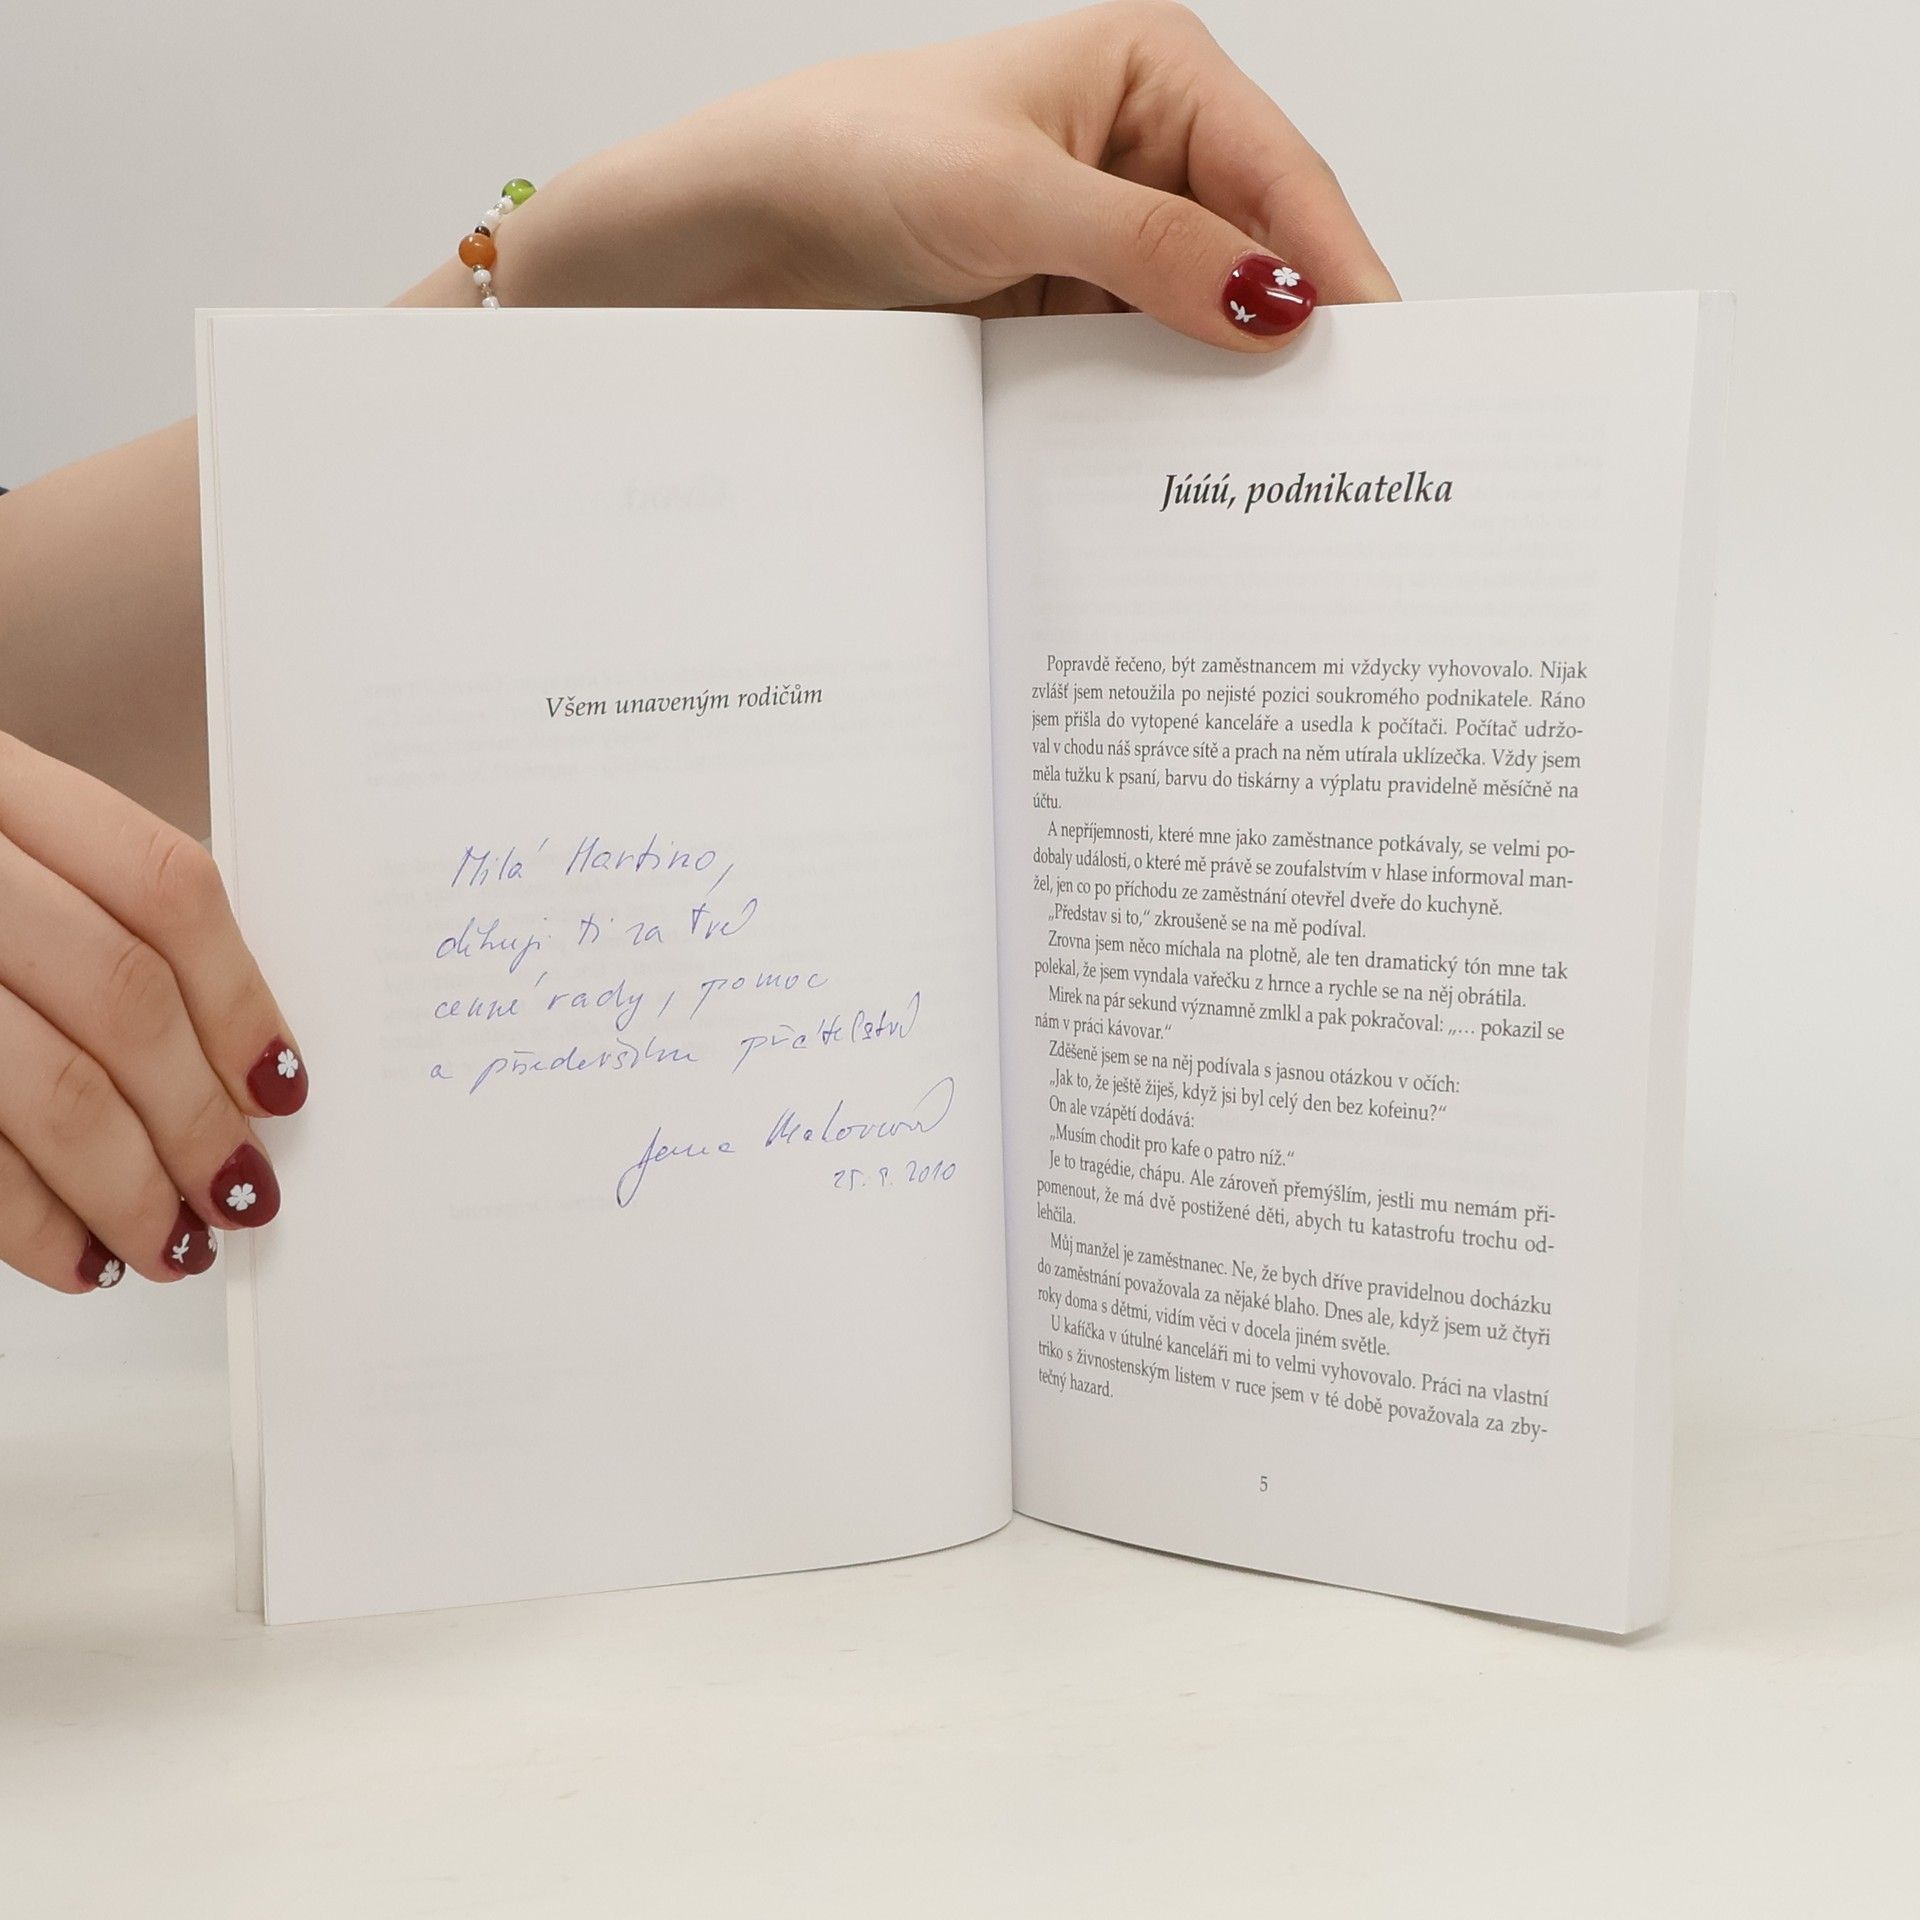 Všem unaveným rodičům
Milá Martino,
děkuji ti za tvé
cenné rady, pomoc
a především přátelství
Jana
2010
Júúú, podnikatelka
Popravdě řečeno, být zaměstnancem mi vždycky vyhovovalo. Nijak
zvlášť jsem netoužila po nejisté pozici soukromého podnikatele. Ráno
jsem přišla do vytopené kanceláře a usedla k počítači. Počítač udržo-
val v chodu náš správce sítě a prach na něm utírala uklízečka. Vždy jsem
měla tužku k psaní, barvu do tiskárny a výplatu pravidelně měsíčně na
účtu.
A nepříjemnosti, které mne jako zaměstnance potkávaly, se velmi po-
dobaly události, o které mě právě se zoufalstvím v hlase informoval man-
žel, jen co po příchodu ze zaměstnání otevřel dveře do kuchyně.
„Představ si to,“ zkroušeně se na mě podíval.
Zrovna jsem něco míchala na plotně, ale ten dramatický tón mne tak
polekal, že jsem vyndala vařečku z hrnce a rychle se na něj obrátila.
Mirek na pár sekund významně zmlkl a pak pokračoval: „… pokazil se
nám v práci kávovar.“
Zděšeně jsem se na něj podívala s jasnou otázkou v očích:
„Jak to, že ještě žiješ, když jsi byl celý den bez kofeinu?“
On ale vzápětí dodává:
„Musím chodit pro kafe o patro níž.“
Je to tragédie, chápu. Ale zároveň přemýšlím, jestli mu nemám při-
pomenout, že má dvě postižené děti, abych tu katastrofu trochu od-
lehčila.
Můj manžel je zaměstnanec. Ne, že bych dříve pravidelnou docházku
do zaměstnání považovala za nějaké blaho. Dnes ale, když jsem už čtyři
roky doma s dětmi, vidím věci v docela jiném světle.
U kafíčka v útulné kanceláři mi to velmi vyhovovalo. Práci na vlastní
triko s živnostenským listem v ruce jsem v té době považovala za zby-
tečný hazard.
5